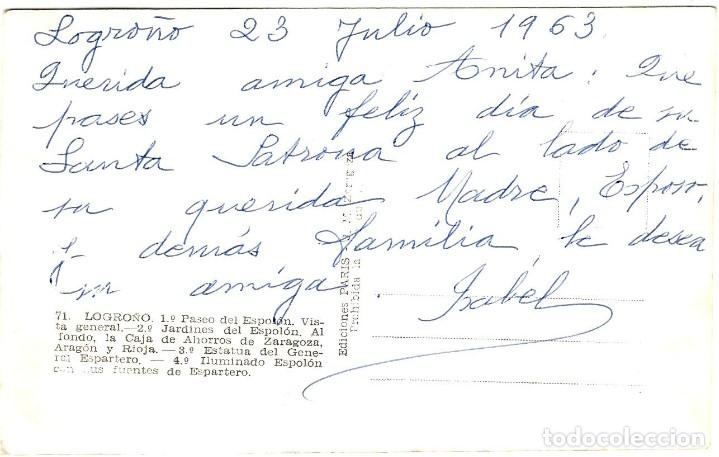 Logroño 23 Julio 1963
Querida amiga Anita: Que
pases un feliz día de su
Santa Patrona al lado de
su querida Madre, Esposo,
y demás familia, le desea
su amiga.
Isabel
71. LOGROÑO. 1.º Paseo del Espolón. Vis-
ta general.—2.º Jardines del Espolón. Al
fondo, la Caja de Ahorros de Zaragoza,
Aragón y Rioja.—3.º Estatua del Gene-
ral Espartero. — 4.º Iluminado Espolón
con sus fuentes de Espartero.
Ediciones PARIS
Prohibida la
todocoleccion